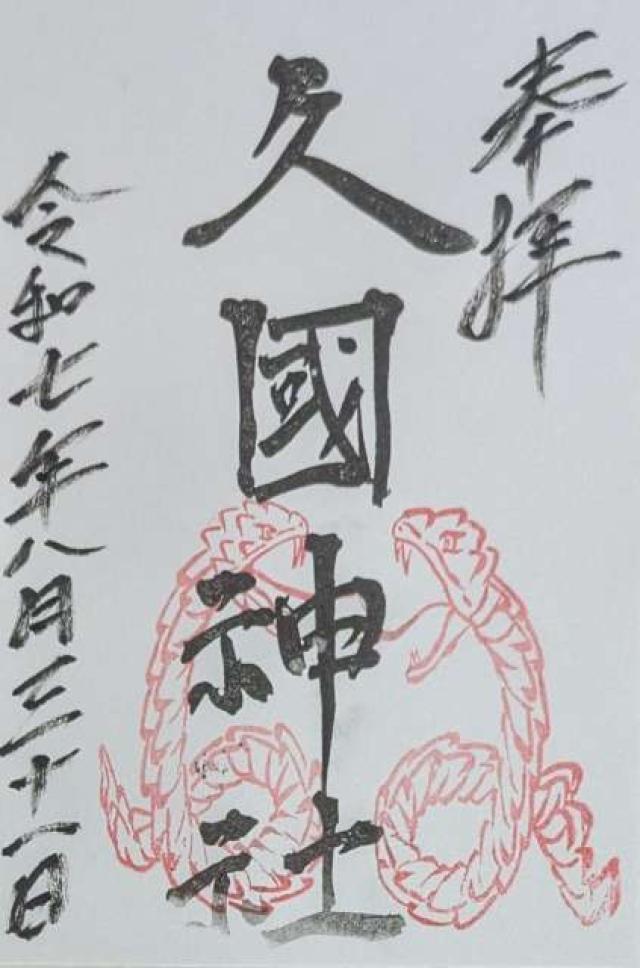 奉拝
久國神社
令和七年八月三十一日